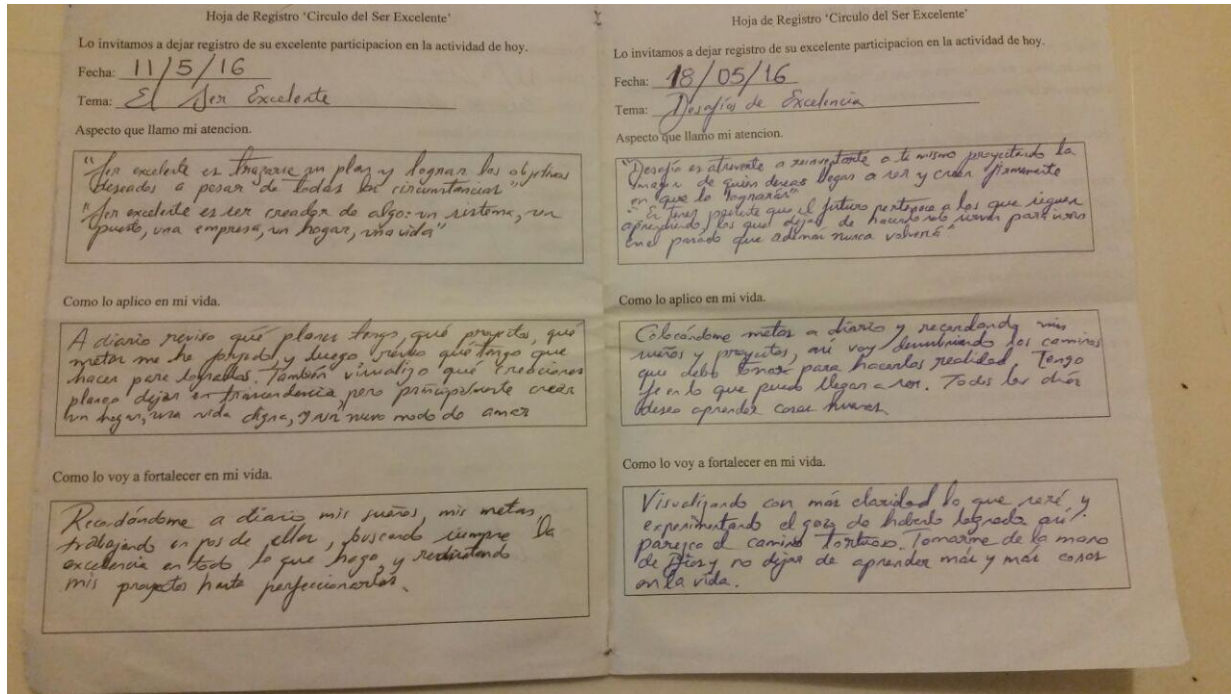 Hoja de Registro 'Circulo del Ser Excelente'
Lo invitamos a dejar registro de su excelente participacion en la actividad de hoy.
Fecha: 11/5/16
Tema: El Ser Excelente
Aspecto que llamo mi atencion.
"Ser excelente es trazarse un plan y lograr los objetivos
deseados a pesar de todas las circunstancias"
"Ser excelente es ser creador de algo: un sistema, un
puesto, una empresa, un hogar, una vida"
Como lo aplico en mi vida.
A diario reviso qué planes tengo, qué proyectos, qué
metas me he forjado, y luego reviso qué tengo que
hacer para lograrlas. También visualizo qué creaciones
planeo dejar en trascendencia, pero principalmente crear
un hogar, una vida digna, y un nuevo modo de amar
Como lo voy a fortalecer en mi vida.
Recordándome a diario mis sueños, mis metas,
trabajando en pos de ellos, buscando siempre la
excelencia en todo lo que hago, y
mis proyectos hasta perfeccionarlos.
Hoja de Registro 'Circulo del Ser Excelente'
Lo invitamos a dejar registro de su excelente participacion en la actividad de hoy.
Fecha: 18/05/16
Tema: Desafíos de Excelencia
Aspecto que llamo mi atencion.
"Desafío es atreverte a reinventarte a ti mismo proyectando la
imagen de quién deseas llegar a ser y creer firmemente
en que lo lograrás"
"Es tener presente que el futuro pertenece a los que siguen
aprendiendo, los que dejan de hacerlo solo sirven para vivir
en el pasado que además nunca volverá"
Como lo aplico en mi vida.
Colocándome metas a diario y recordando mis
sueños y proyectos, así voy descubriendo los caminos
que debo tomar para hacerlos realidad. Tengo
fe en lo que puedo llegar a ser. Todos los días
deseo aprender cosas nuevas.
Como lo voy a fortalecer en mi vida.
Visualizando con más claridad lo que seré, y
experimentando el gozo de haberlo logrado así
parezca el camino tortuoso. Tomarme de la mano
de Dios y no dejar de aprender más y más cosas
en la vida.